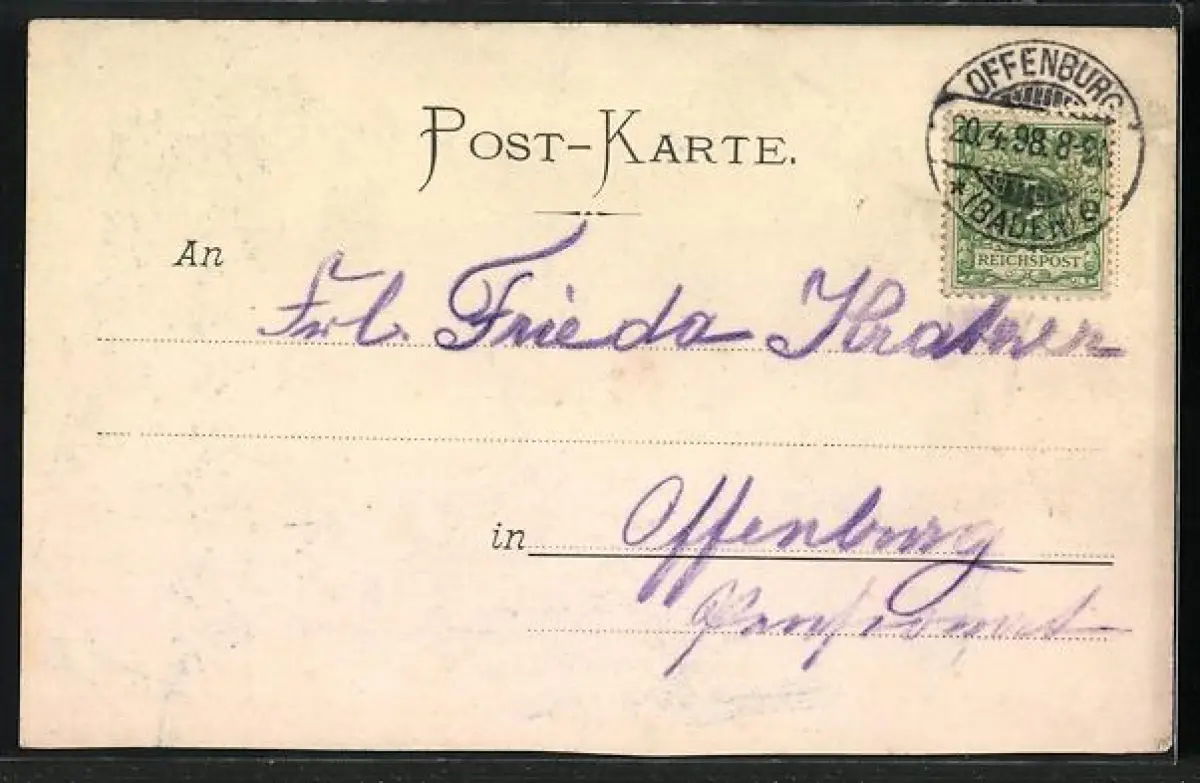 OFFENBURG
20.4.98. 8-9N
* (BADEN) *
REICHSPOST
POST-KARTE.
An
Frl. Frieda
in Offenburg
Pensionat